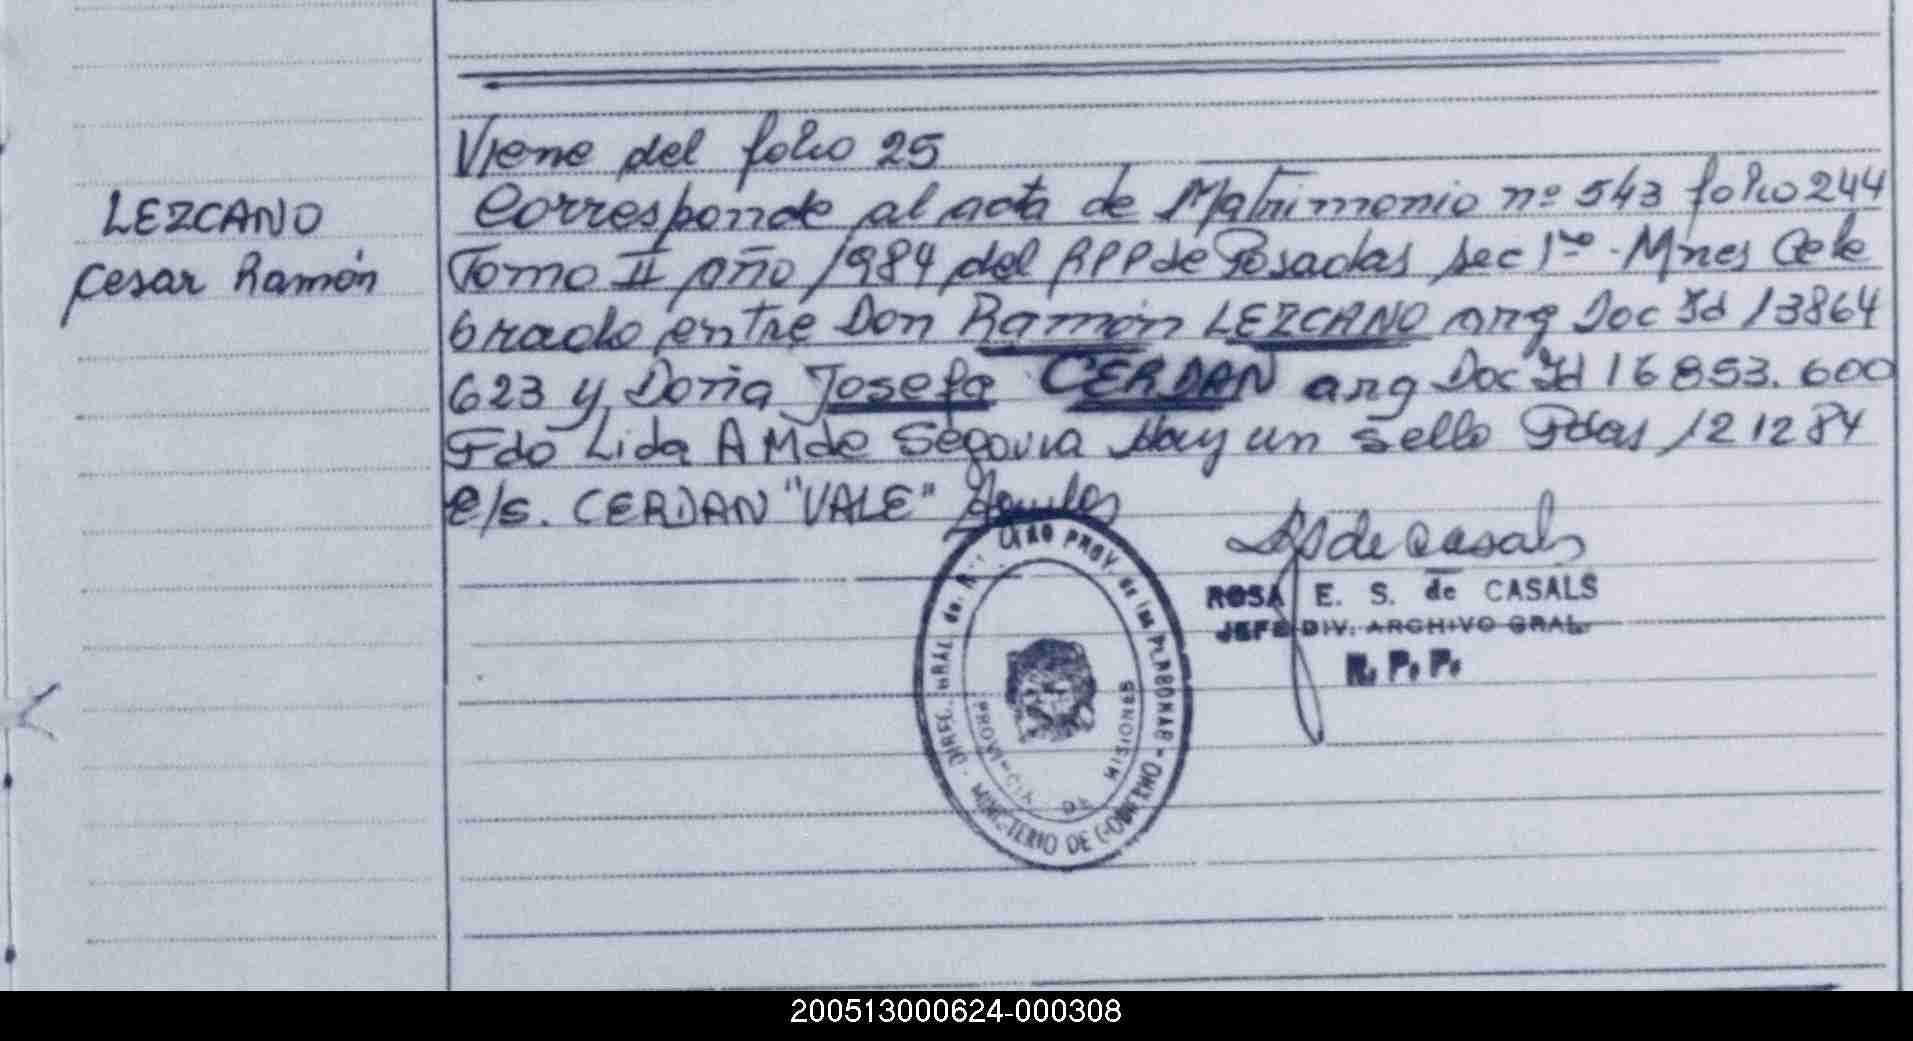 LEZCANO
Cesar Ramón
Viene del folio 25
Corresponde al acta de Matrimonio nº 543 folio 244
Tomo II año 1984 del RPP de Posadas sec 1ra - Mnes Cele
brado entre Don Ramón LEZCANO arg Doc Id 13864
623 y Doña Josefa CERDAN arg Doc Id 16853.600
Fdo Lida A M de Segovia Hay un sello Pdas 12 12 84
e/s. CERDAN "VALE"
de Casals
ROSA E. S. de CASALS
JEFE DIV. ARCHIVO GRAL.
R. P. P.
DIREC. GRAL. del PROV. de las PERSONAS - MINISTERIO DE GOBIERNO
PROVINCIA DE MISIONES
200513000624-000308